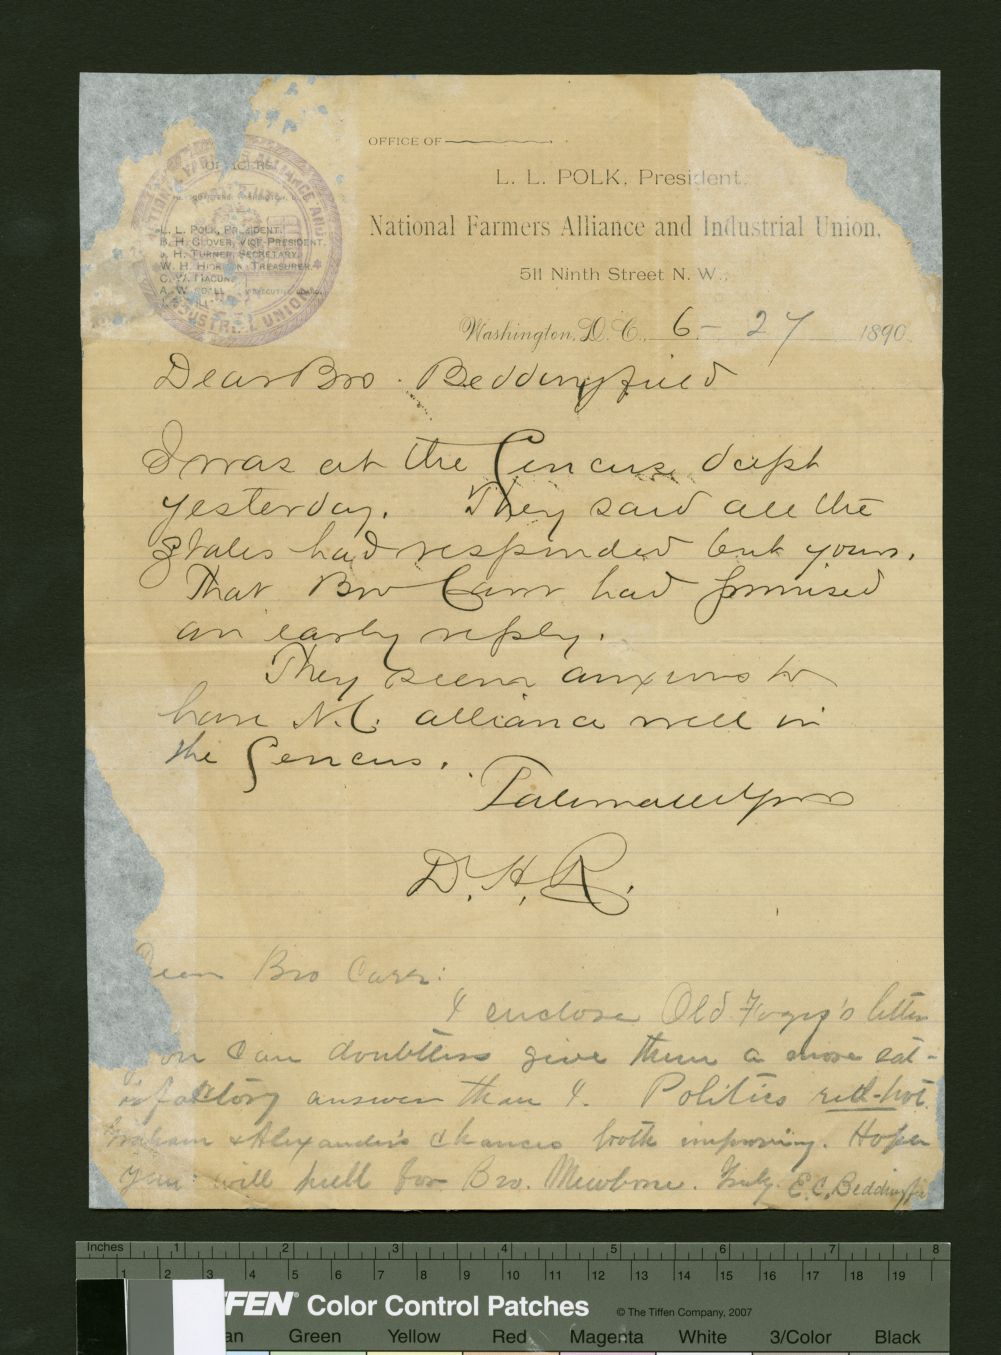 OFFICE OF
L. L. POLK, President.
National Farmers Alliance and Industrial Union,
511 Ninth Street N. W.,
OFFICERS
L. L. POLK, PRESIDENT.
B. H. CLOVER, VICE-PRESIDENT.
J. H. TURNER, SECRETARY.
W. H. TREASURER.
C. W. MACUNE
A. W.
EXECUTIVE BOARD.
INDUSTRIAL UNION
Washington, D. C., 6 - 27 1890.
Dear Bro. Beddingfield
I was at the Cencus dept
yesterday. They said all the
States had responded but yours.
That Bro Carr had promised
an early reply.
They seem anxious to
have N.C. alliance well in
the Cencus.
Fraternally Yours
D. H. R.
Dear Bro Carr:
I enclose Old Fogy's letter
You can doubtless give them a more sat-
isfactory answer than I. Politics red-hot.
Graham & Alexander's chances both improving. Hope
you will pull for Bro. Mewborne. Truly E. C. Beddingfi
Inches 1 2 3 4 5 6 7 8
1 2 3 4 5 6 7 8 9 10 11 12 13 14 15 16 17 18 19
FFEN® Color Control Patches © The Tiffen Company, 2007
an Green Yellow Red Magenta White 3/Color Black